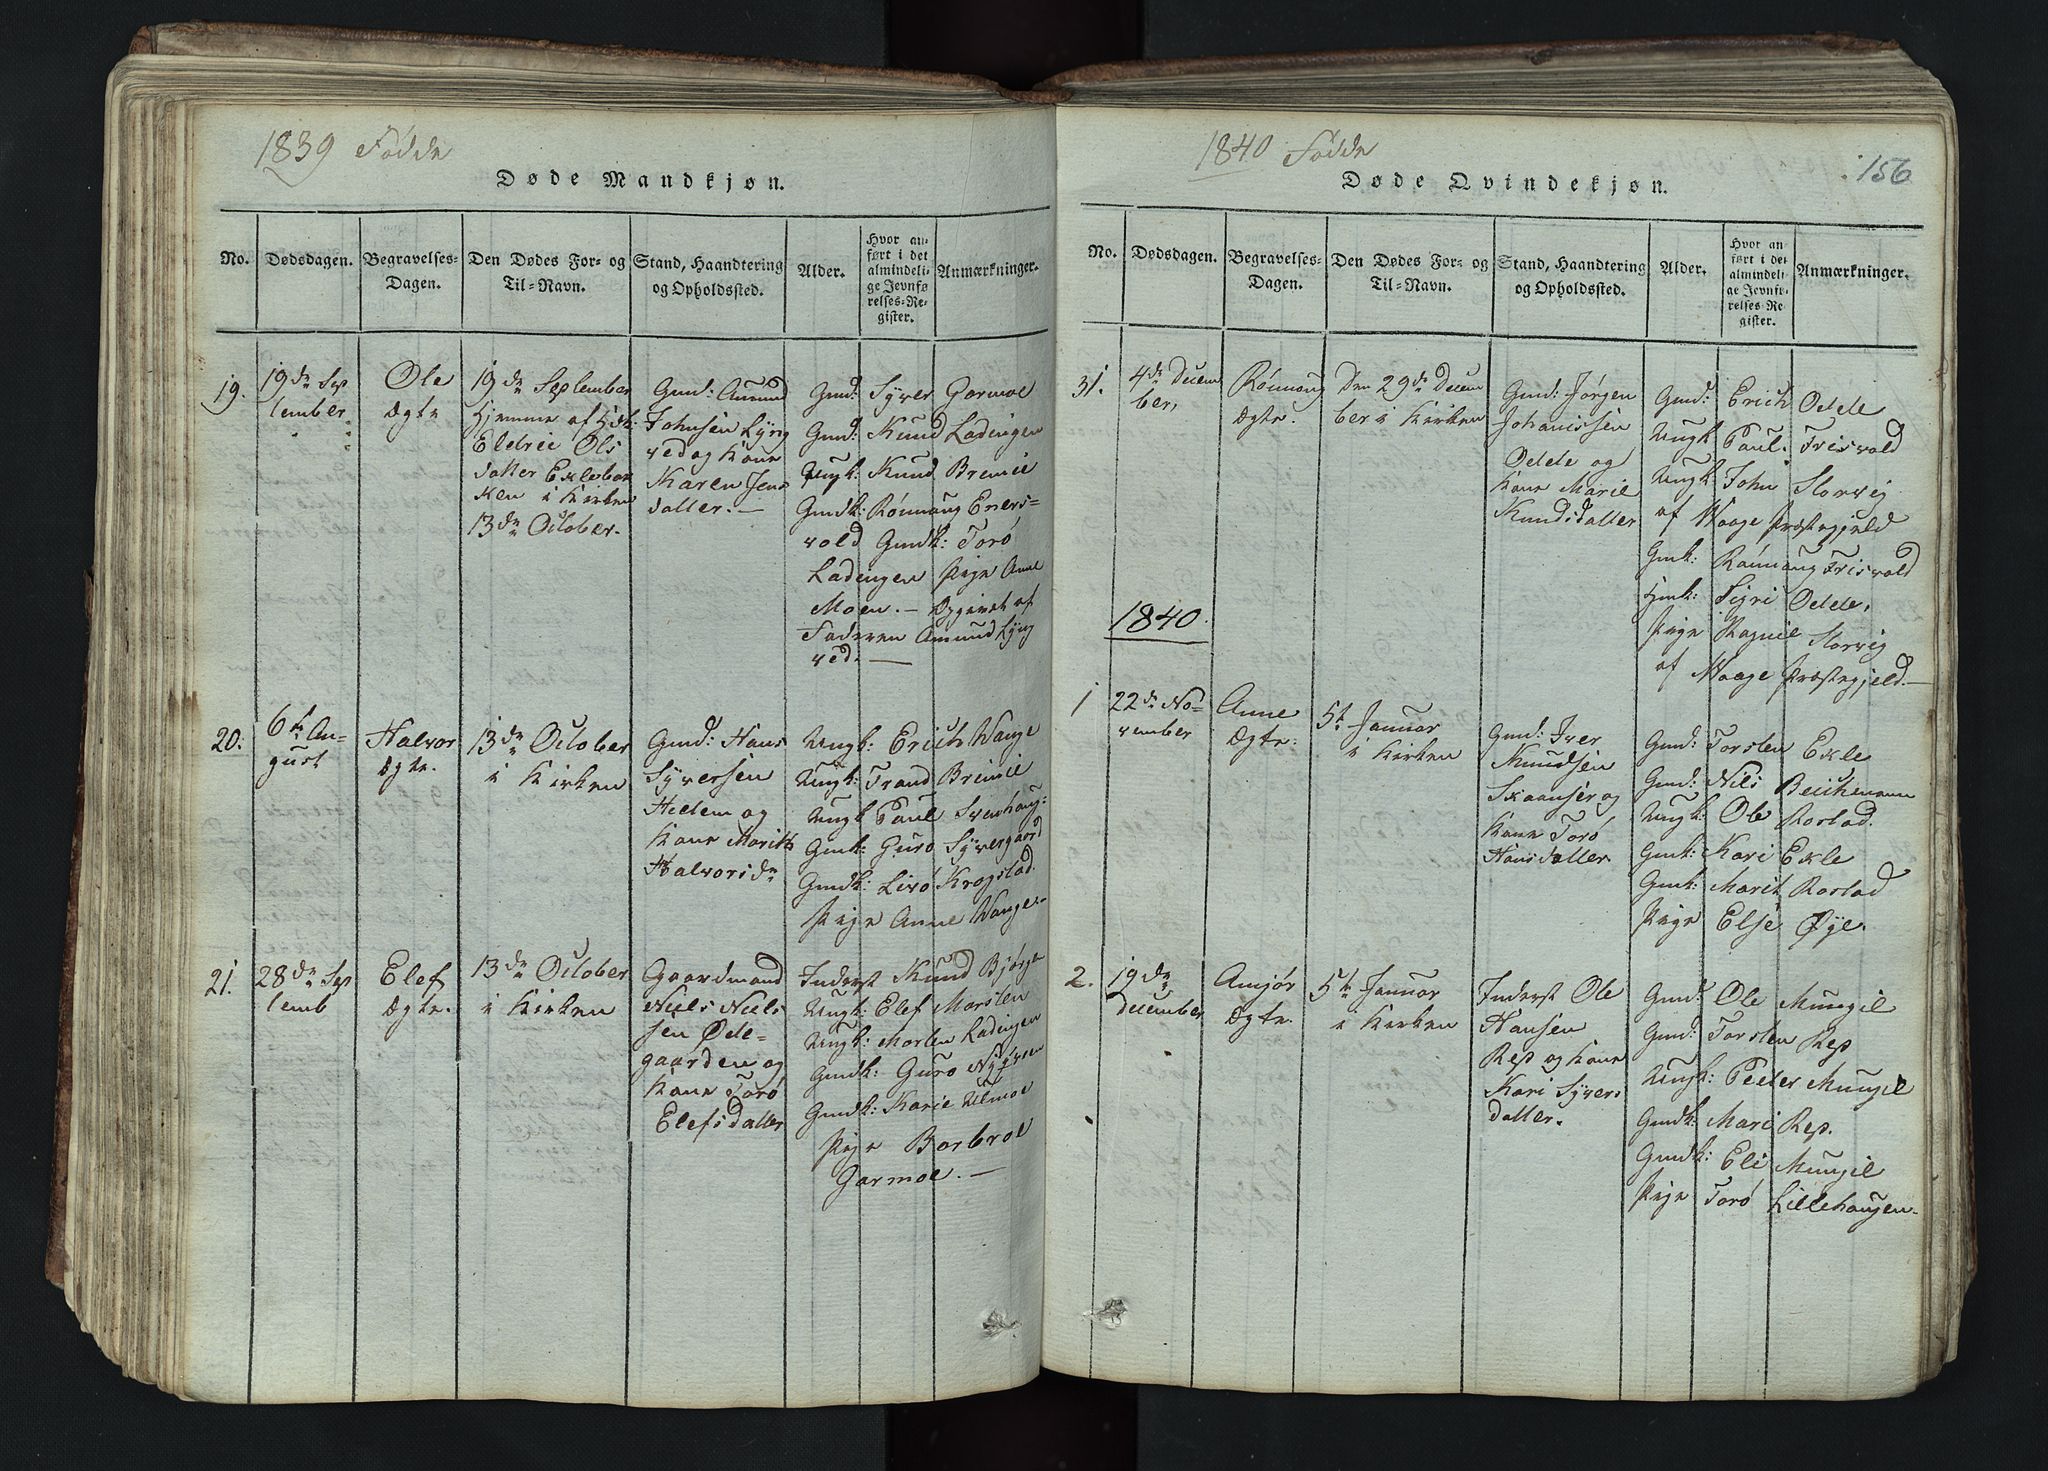 1839 Fødde
Døde Mandkjøn.
No.
Dødsdagen.
Begravelses-
Dagen.
Den Dødes For- og
Til-Navn.
Stand, Haandtering
og Opholdssted.
Alder.
Hvor an-
ført i det
almindeli-
ge Jevnfø-
relses-Re-
gister.
Anmærkninger.
19.
19de Sep
tember
Ole
Ægte
19de September
Hjemme af
Eldrie Ols
datter
i Kirken
13de October.
Gmd: Amund
Johnsen Lyng
ved og Kone
Karen Jens
datter. —
Gmd: Syver Garmoe
Gmd: Knud Ladingen
Ungk: Knud Bremie
Gmdk: Rønnoug Eners-
vold Gmdk: Torø
Ladingen Pige Anne
Moen. — Opgivet af
Faderen Amund Lyng
ved. —
20.
6te Au-
gust
Halvor
Ægte.
13de October
i Kirken
Gmd: Hans
Syversen
og
Kone Marith
Halvorsdr
Ungk: Erich Wange
Ungk: Trand Bremie
Ungk Paul Svenhoug-
Gmk: Guro Syvergaard
Gmdk: Livø Krogstad.
Pige Anne Wange-
21.
28de Sep
temb
Elef
Ægte.
13de October
i Kirken
Gaardmand
Niels Niels
sen Øde-
gaarden og
Kone Torø
Elefsdatter
Inderst Knud
Ungk: Elef Marsten
Ungk: Morten Ladingen
Gmdk: Guro
Gmdk: Karie Ulmoe
Pige Barbroe
Garmoe. —
1840 Fødde
156
Døde Qvindekjøn.
No.
Dødsdagen.
Begravelses-
Dagen.
Den Dødes For- og
Til-Navn.
Stand, Haandtering
og Opholdssted.
Alder.
Hvor an
ført i det
almindeli
ge Jevnfø-
relses-Re-
gister.
Anmærkninger.
31.
4de Decem
ber,
Rønnoug
Ægte.
Den 29de Decem
ber i Kirken
Gmd: Jørgen
Johanissen
Odde og
Kone Marie
Knudsdatter
Gmd: Erich Odde
Ungk Paul Frisvold
Ungk John Storvig
af Waage Præstegjeld
Gmk: Rønnoug Frisvold
Gmk: Sigri Odde,
Pige Ragnil Storvig
af Waage Præstegjeld. —
1840.
1
22de No-
vember
Anne
Ægte.
5te Januar
i Kirken
Gmd: Iver
Knudsen
Skaanser og
Kone Torø
Hansdatter.
Gmd: Torsten Exle
Gmd: Nils Beichmann
Ungk: Ole Rostad.
Gmk: Kari Exle
Gmk: Marit Rostad
Pige Else Øye.
2.
19de
December
Amjør
Ægte.
5te Januar
i Kirken
Inderst Ole
Hansen
Rep og Kone
Kari Syvers
datter.
Gmd: Ole Mungil
Gmd: Torsten Rep
Ungk: Peder Mungil
Gmdk: Mari Rep.
Gmdk: Eli Mungil
Pige Torø Lillehaugen.